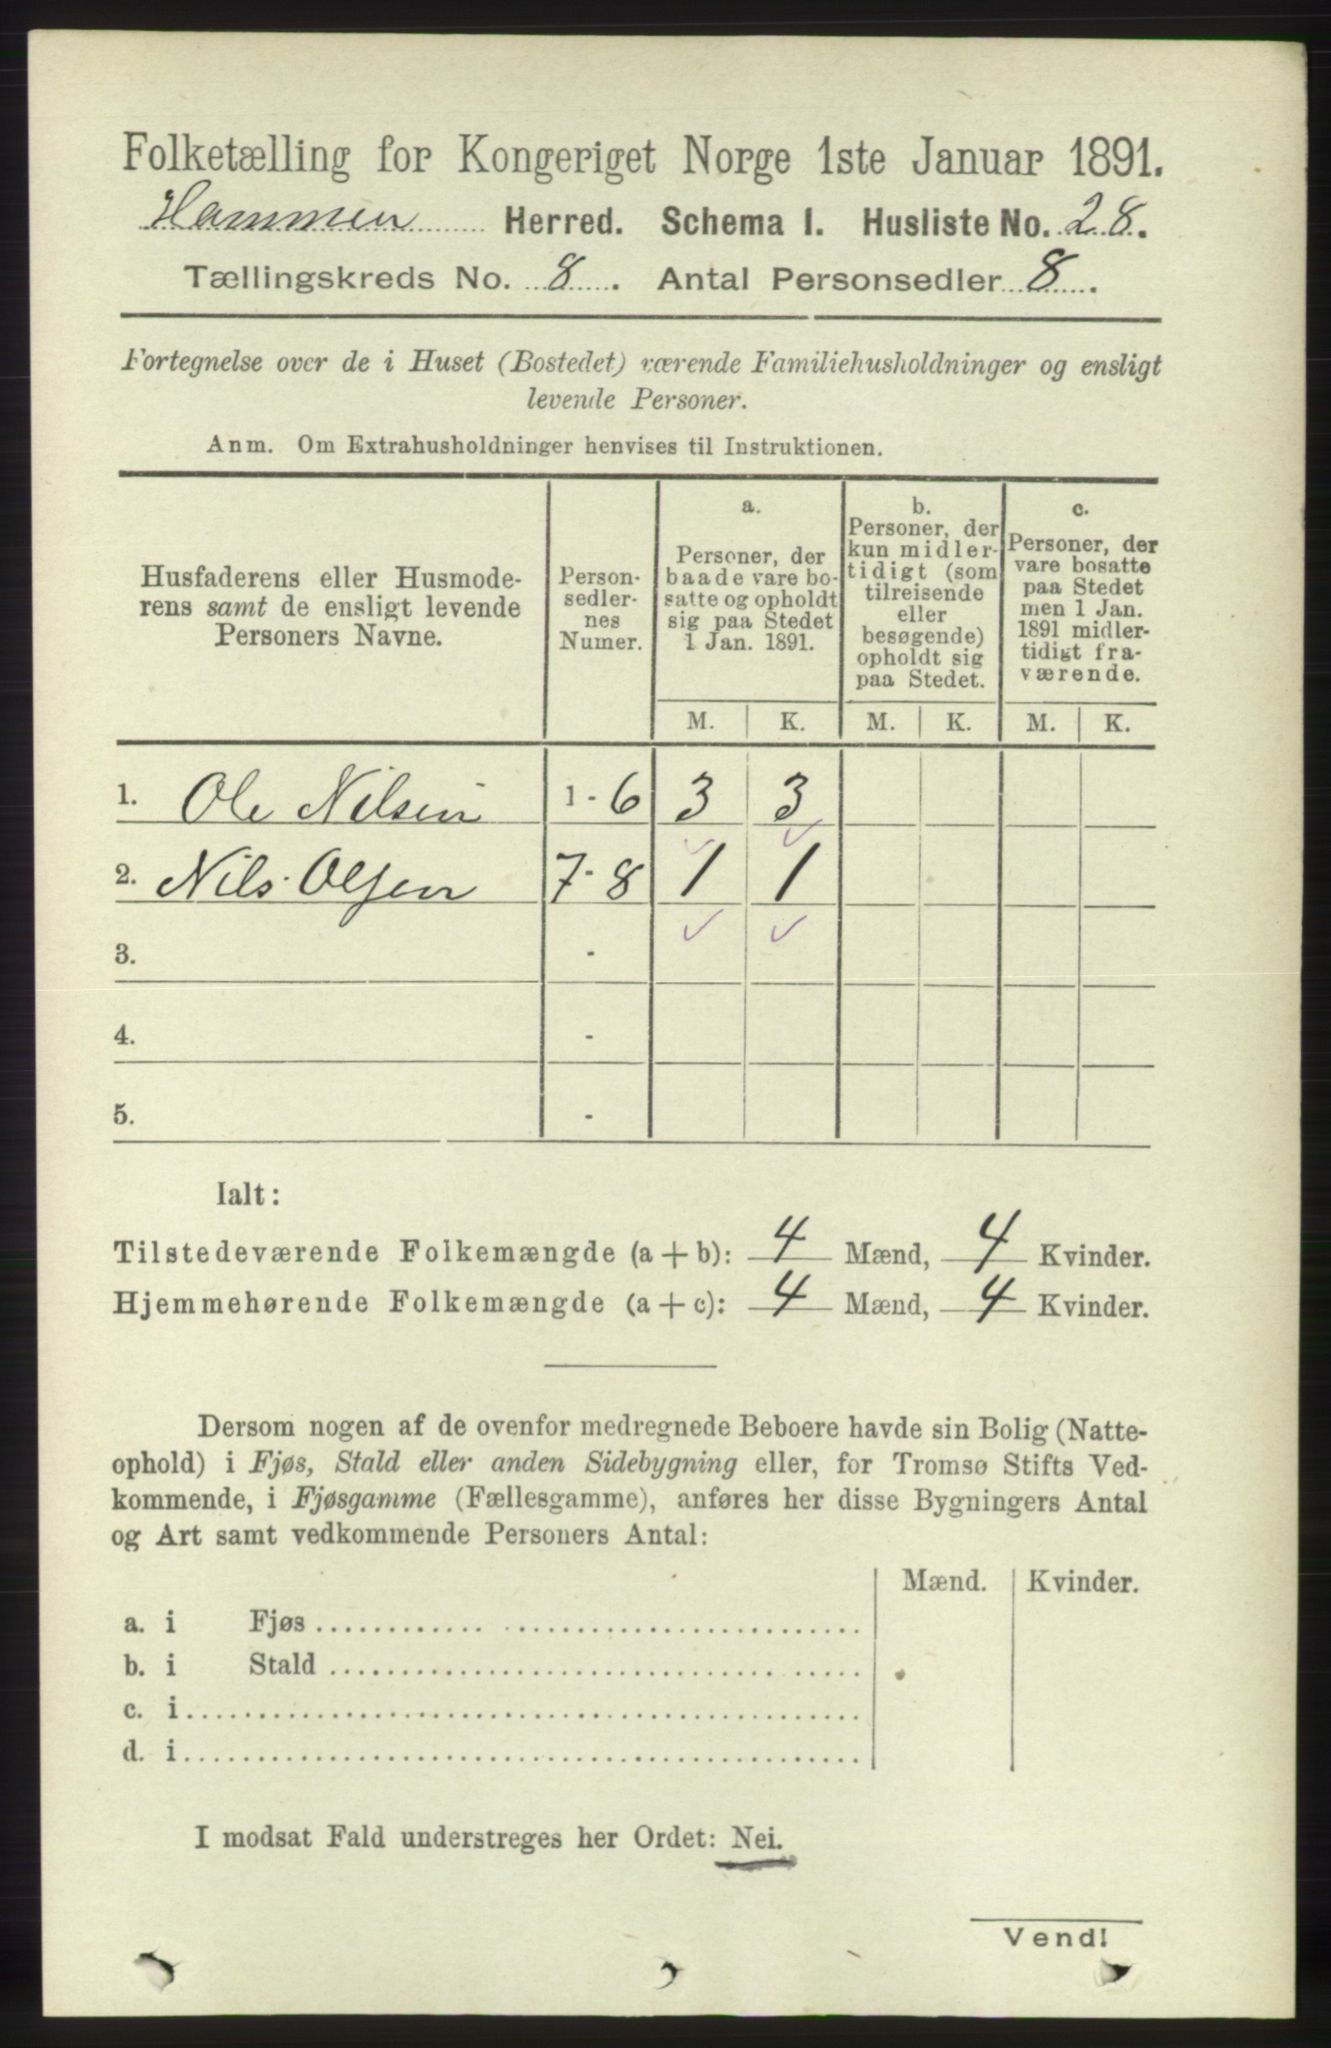 Folketælling for Kongeriget Norge 1ste Januar 1891.
Hammer Herred. Schema I. Husliste No. 28.
Tællingskreds No. 8. Antal Personsedler 8.
Fortegnelse over de i Huset (Bostedet) værende Familiehusholdninger og ensligt
levende Personer.
Anm. Om Extrahusholdninger henvises til Instruktionen.
Husfaderens eller Husmode-
rens samt de ensligt levende
Personers Navne.
Person-
sedler-
nes
Numer.
a.
Personer, der
baade vare bo-
satte og opholdt
sig paa Stedet
1 Jan. 1891.
b.
Personer, der
kun midler-
tidigt (som
tilreisende
eller
besøgende)
opholdt sig
paa Stedet.
c.
Personer, der
vare bosatte
paa Stedet
men 1 Jan.
1891 midler-
tidigt fra-
værende.
M. K. M. K. M. K.
1. Ole Nilsen 1-6 3 3
2. Nils Olsen 7-8 1 1
3. -
4. -
5. -
Ialt:
Tilstedeværende Folkemængde (a + b): 4 Mænd, 4 Kvinder.
Hjemmehørende Folkemængde (a + c): 4 Mænd, 4 Kvinder.
Dersom nogen af de ovenfor medregnede Beboere havde sin Bolig (Natte-
ophold) i Fjøs, Stald eller anden Sidebygning eller, for Tromsø Stifts Ved-
kommende, i Fjøsgamme (Fællesgamme), anføres her disse Bygningers Antal
og Art samt vedkommende Personers Antal:
Mænd. Kvinder.
a. i Fjøs
b. i Stald
c. i
d. i
I modsat Fald understreges her Ordet: Nei.
Vend!